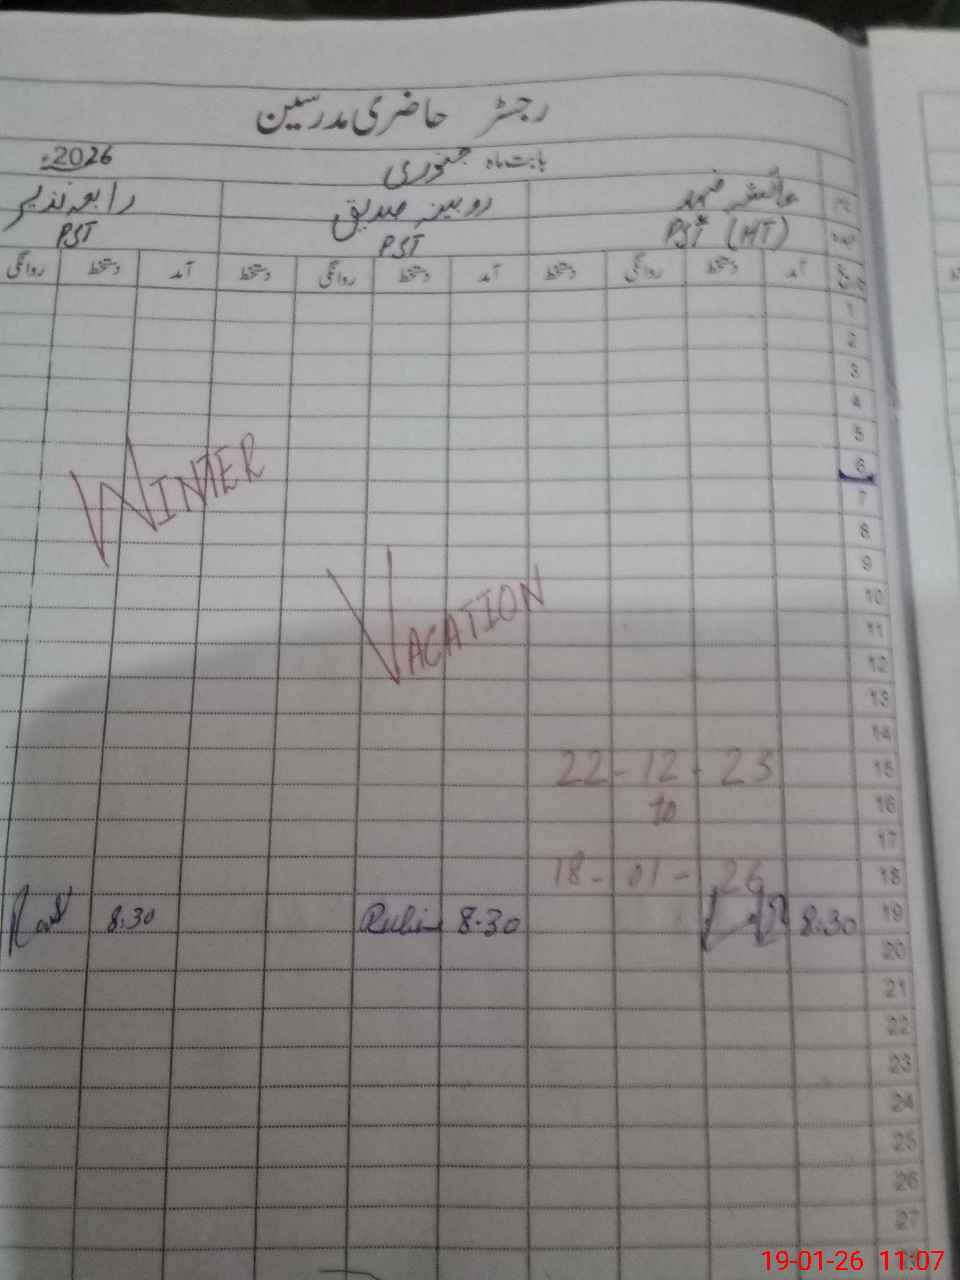 رجسٹر حاضری مدرسین
بابت ماہ جنوری 2026ء
عائشہ روبینہ صدیق رابعہ نذیر
PST (HT) PST PST
آمد دستخط روانگی دستخط آمد دستخط روانگی دستخط آمد دستخط روانگی
1
2
3
4
5
6
WINTER
7
8
9
10
VACATION
11
12
13
14
22-12-25 15
to 16
17
18-01-26 18
8:30 Rubi 8:30 8:30 19
20
21
22
23
24
25
26
27
19-01-26 11:07